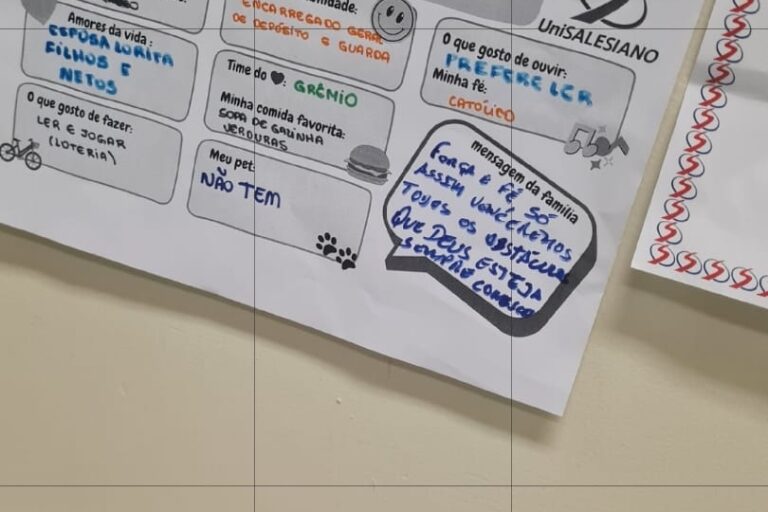 UniSALESIANO
Amores da vida :
ESPOSA LURITA
FILHOS E
NETOS
ENCARREGADO GERAL
DE DEPÓSITO E GUARDA
O que gosto de ouvir:
PREFERE LER
Minha fé:
CATÓLICO
Time do ♥: GRÊMIO
Minha comida favorita:
SOPA DE GALINHA
VERDURAS
O que gosto de fazer:
LER E JOGAR
(LOTERIA)
Meu pet:
NÃO TEM
mensagem da família
FORÇA E FÉ SÓ
ASSIM VENCEREMOS
TODOS OS OBSTÁCULOS
QUE DEUS ESTEJA
SEMPRE CONOSCO